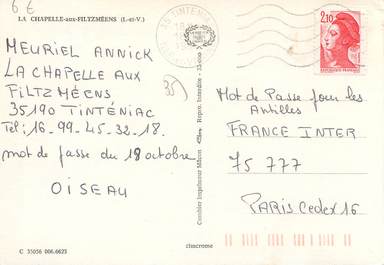 6 €
LA CHAPELLE-aux-FILTZMÉENS (I.-et-V.)
35 TINTENIAC
2,10
MEURIEL ANNICK
LA CHAPELLE AUX
FILTZ MÉENS
35190 TINTÉNIAC
Tel: 16-99-45-32-18.
mot de passe du 18 octobre
OISEAU
35
Mot de Passe pour les
Antilles
FRANCE INTER
75 777
PARIS Cedex 16
Combier Imprimeur Mâcon
C 35056 006.6623
cimcrome